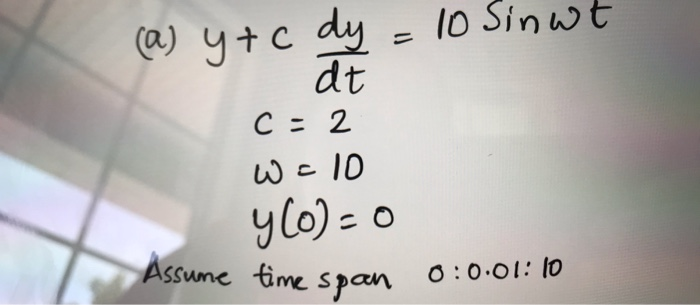 (a) y + c dy/dt = 10 Sin wt
C = 2
w = 10
y(0) = 0
Assume time span 0:0.01:10